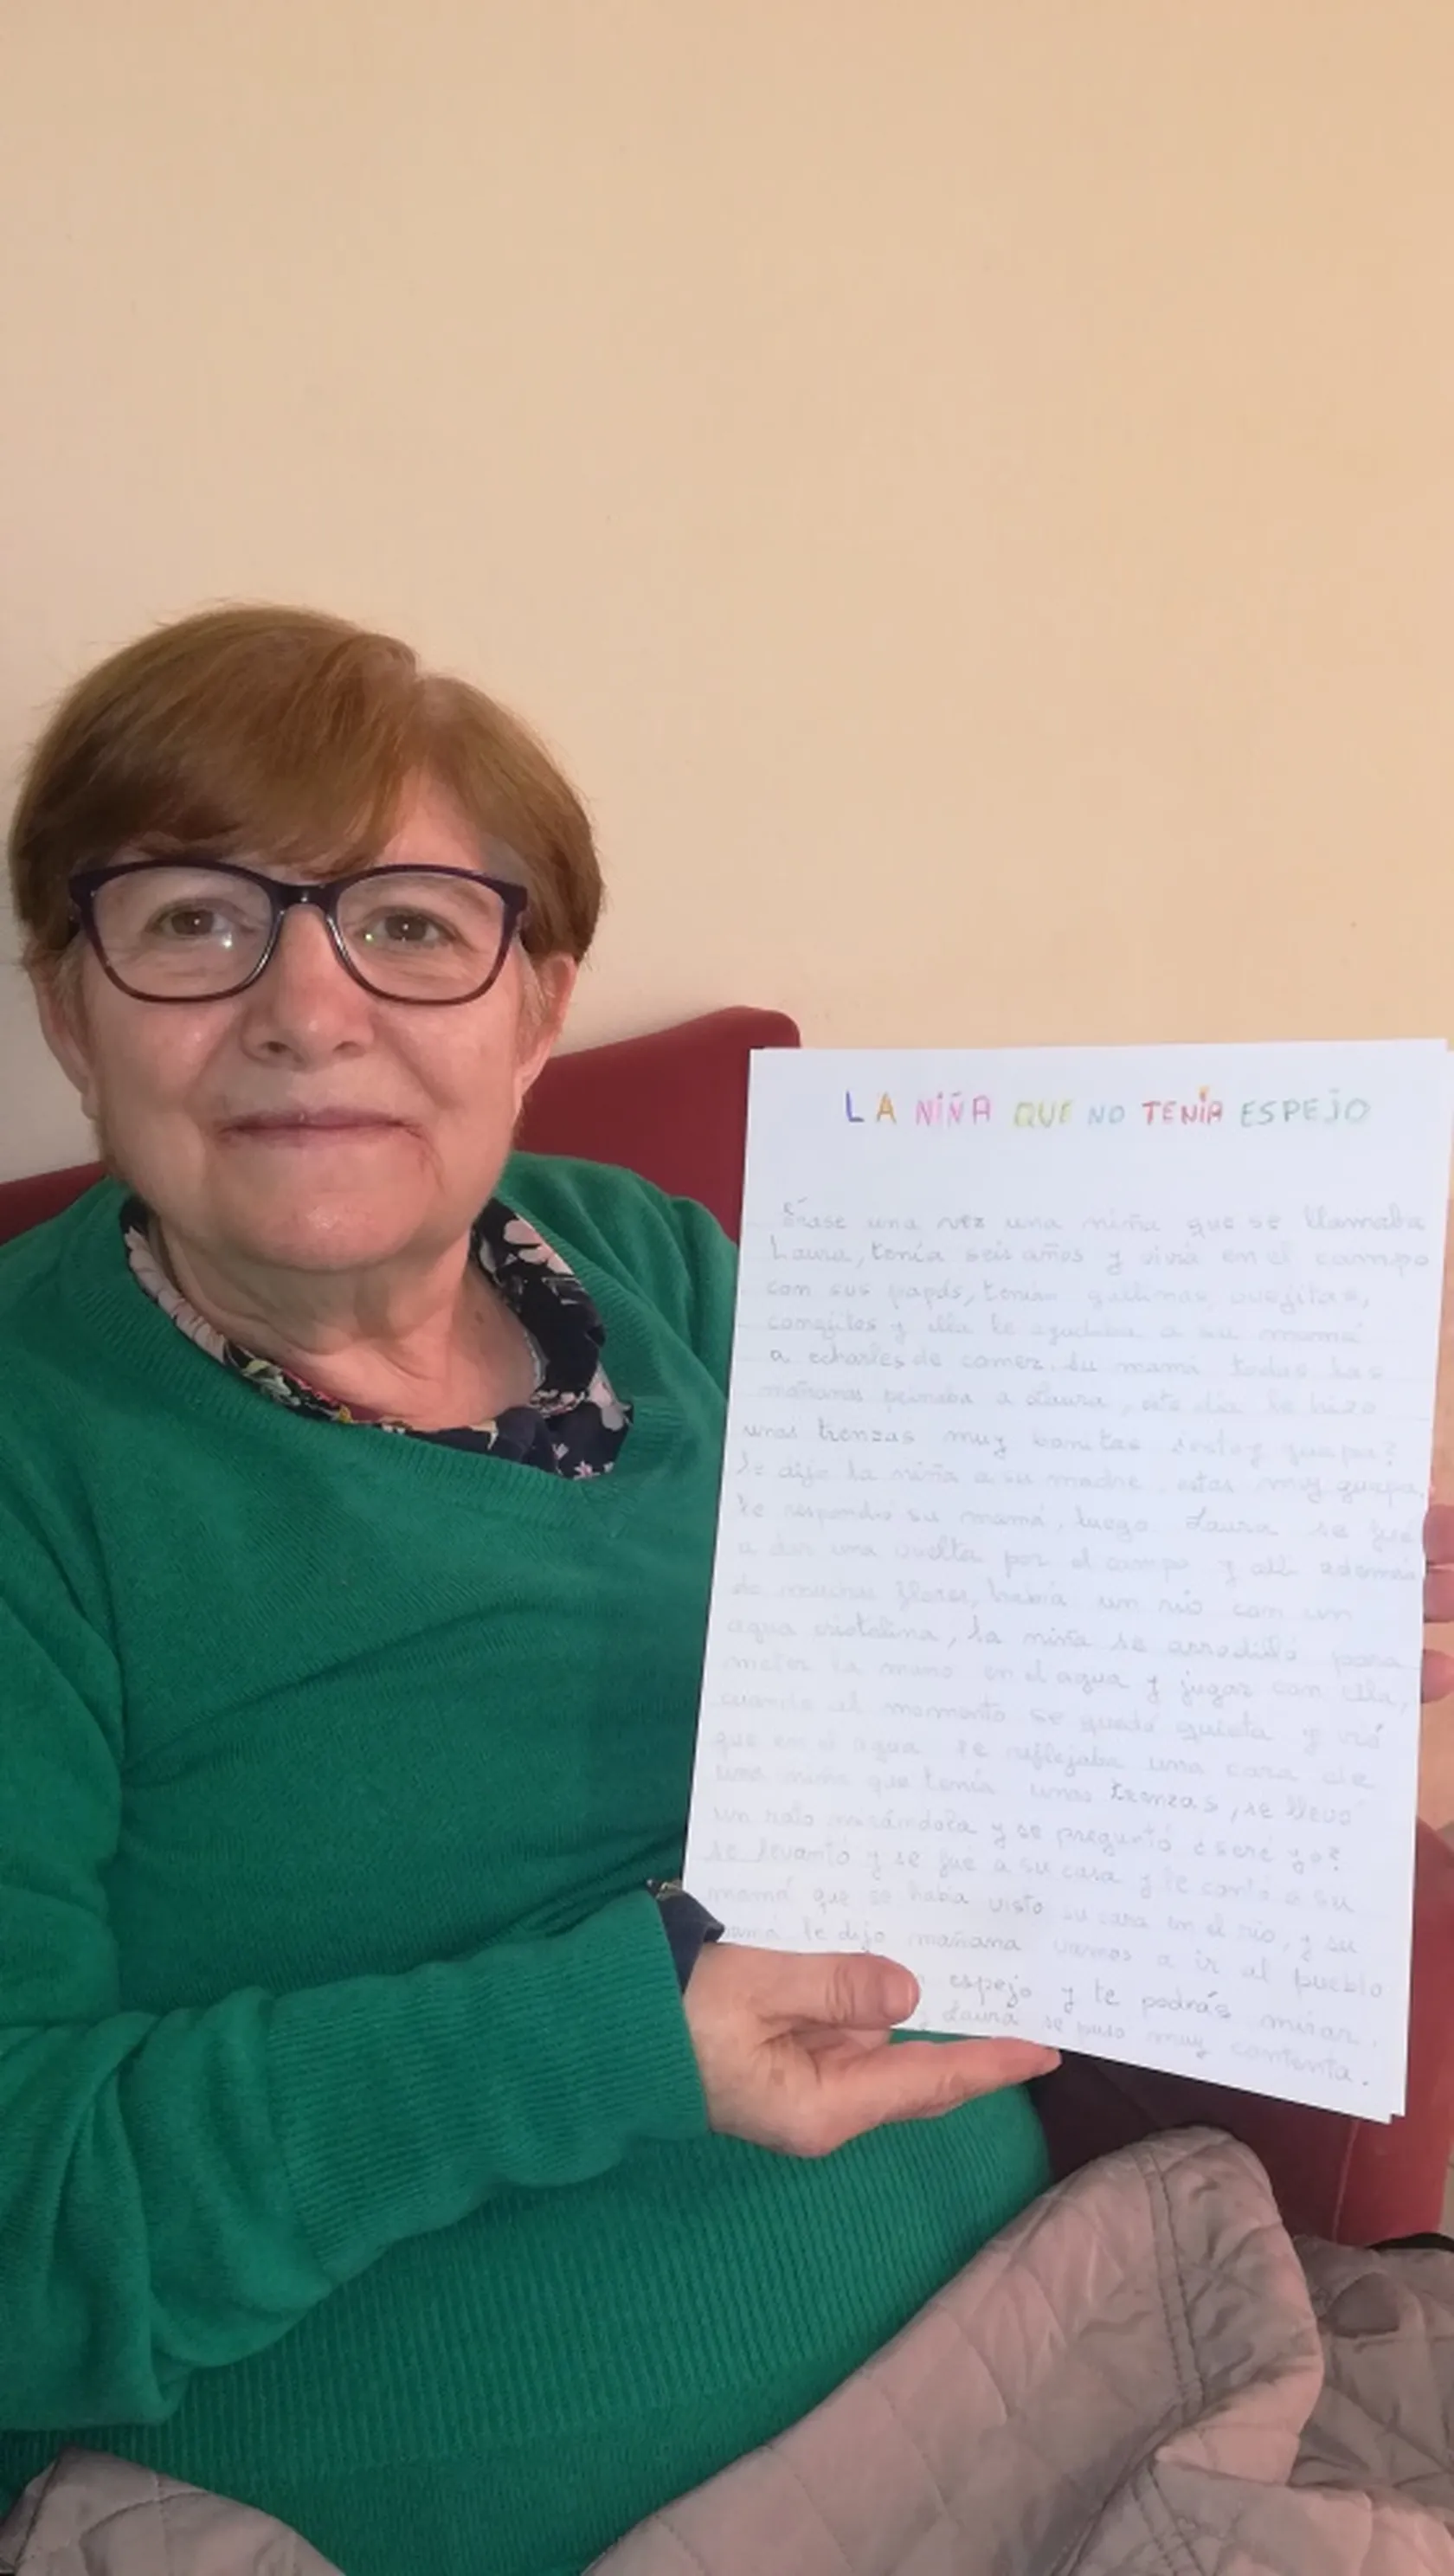 LA NIÑA QUE NO TENÍA ESPEJO
Érase una vez una niña que se llamaba
Laura, tenía seis años y vivía en el campo
con sus papás, tenían gallinas, ovejitas,
conejitos y ella le ayudaba a su mamá
a echarles de comer, su mamá todas las
mañanas peinaba a Laura, este día le hizo
unas trenzas muy bonitas ¿estoy guapa?
le dijo la niña a su madre, estas muy guapa,
le respondió su mamá, luego Laura se fué
a dar una vuelta por el campo y allí además
de muchas flores, había un río con un
agua cristalina, la niña se arrodilló para
meter la mano en el agua y jugar con ella,
cuando al momento se quedó quieta y vió
que en el agua se reflejaba una cara de
una niña que tenía unas trenzas, se llevó
un rato mirándola y se preguntó ¿seré yo?
se levantó y se fué a su casa y le contó a su
mamá que se había visto su cara en el río, y su
mamá le dijo mañana vamos a ir al pueblo
espejo y te podrás mirar,
y Laura se puso muy contenta.